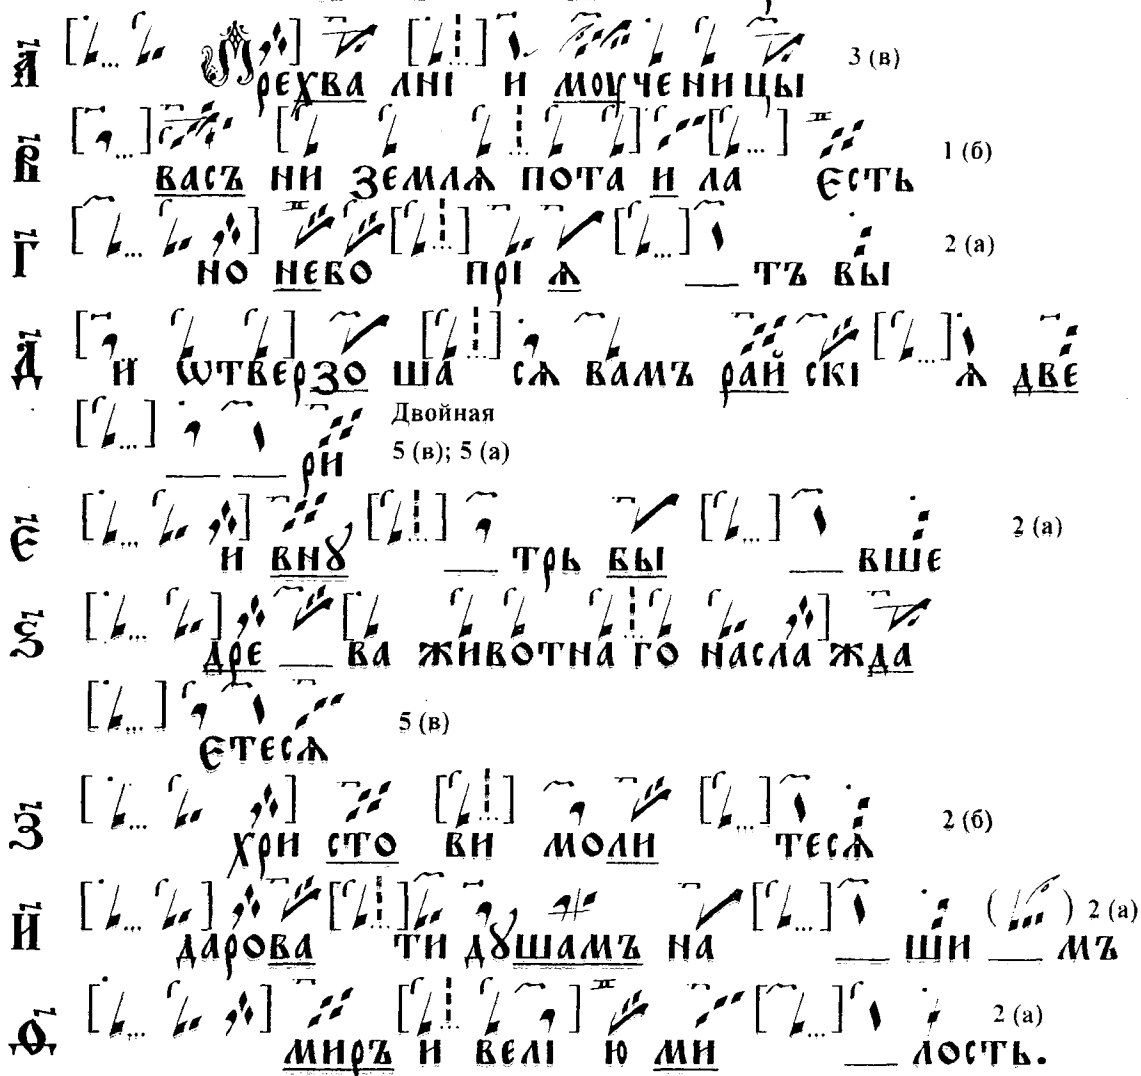 А҃ Прехва лнї и моученицы 3 (в)
В҃ васъ ни земля пота и ла есть 1 (б)
Г҃ но небо прї ѧ __ тъ вы 2 (а)
Д҃ и ѿтверзо ша сѧ вамъ рай скї ѧ две
__ __ ри Двойная 5 (в); 5 (а)
Є҃ и внꙋ __ трь бы __ вше 2 (а)
Ѕ҃ дре __ ва животна го насла жда
етесѧ 5 (в)
З҃ хри сто ви моли тесѧ 2 (б)
И҃ дарова ти дꙋшамъ на __ ши __ мъ 2 (а)
Ѳ҃ миръ и велї ю ми __ лость. 2 (а)